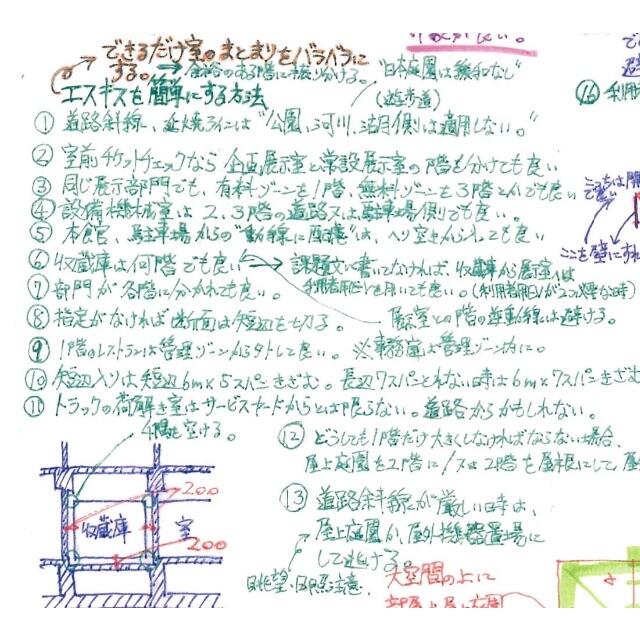 できるだけ室のまとまりをバラバラに
する。→余裕のある階に振り分ける。
エスキスを簡単にする方法
"日本庭園は緩和なし"
(遊歩道)
① 道路斜線、延焼ラインは"公園、河川、沼月側は適用しない。"
② 室前チケットチェックなら企画展示室と常設展示室の階を分けても良い
③ 同じ展示部門でも、有料ゾーンを1階、無料ゾーンを3階とかでも良い
④ 設備機械室は2、3階の道路又は駐車場側でも良い。
⑤ 本館、駐車場からの"動線に配慮"は、へり空きから入っても良い
⑥ 収蔵庫は何階でも良い → 課題文に書いてなければ、収蔵庫から展室は
利用者用EVを用いても良い。(利用者用EVが2つ必要な時)
⑦ 部門が各階に分かれても良い。
展示室との階の逆動線は避ける。
⑧ 指定がなければ断面は短辺を切る。
⑨ 1階のレストランは管理ゾーンから外して良い。 ※事務室は管理ゾーン内に。
⑩ 短辺入りは短辺6m×5スパンきざむ。長辺7スパンとれない時は6m×7スパンきざむ
⑪ トラックの荷解き室はサービスヤードからとは限らない。道路からかもしれない。
4隅を空ける。
⑫ どうしても1階だけ大きくしなければならない場合、
屋上庭園を2階に/又は2階を屋根にして、
200
収蔵庫
室
200
⑬ 道路斜線が厳しい時は、
屋上庭園か、屋外機器置場に
して逃げる。
眺望、日照注意。
大空間の上に
⑯ 利用者
こっちは
ここを壁にすれ